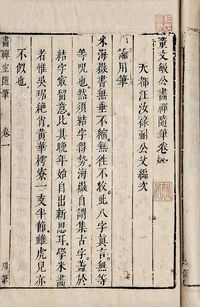 董文敏公畫禪隨筆卷之一
天都汪汝祿嗣公父編次
論用筆
米海嶽書無垂不縮無往不收此八字真言無等
等咒也然須結字得勢海嶽自謂集古字蓋於
結字最留意比其晚年始自出新思耳學米書
者惟吳琚絕肖黃華樗寮一支半節雖虎兒亦
不似也
畫禪室隨筆 卷一 用筆